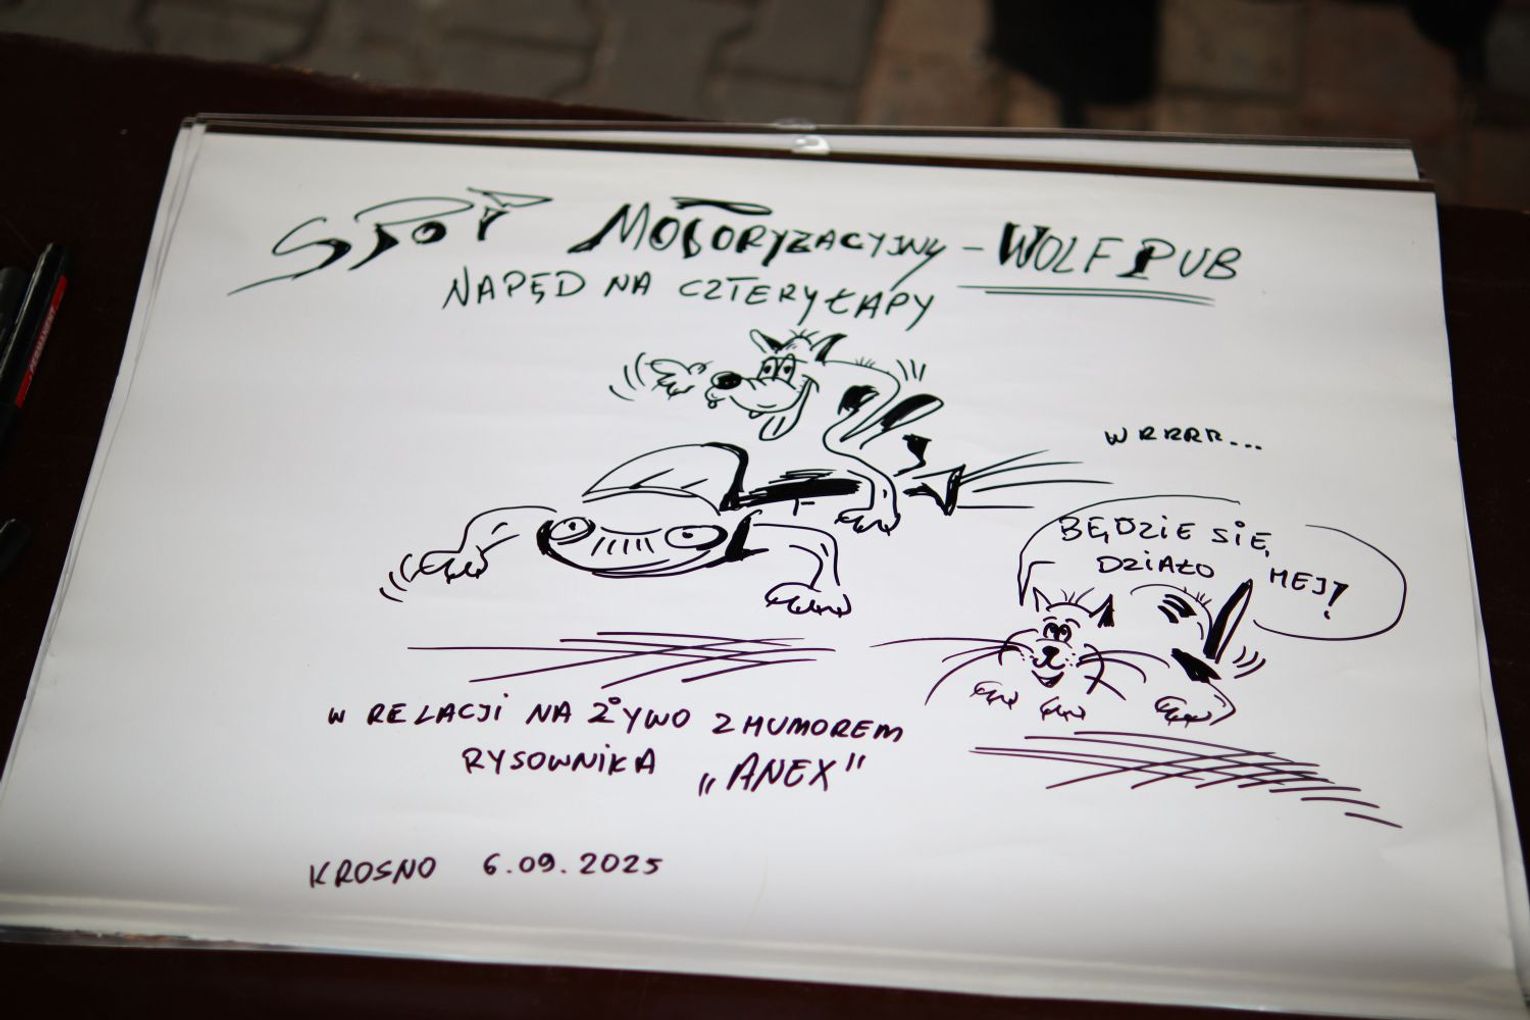 SPOT MOTORYZACYJNY - WOLF PUB
NAPĘD NA CZTERY ŁAPY
WRRRR...
BĘDZIE SIĘ
DZIAŁO HEJ!
W RELACJI NA ŻYWO Z HUMOREM
RYSOWNIKA „ANEX"
KROSNO 6.09.2025
PERMANENT